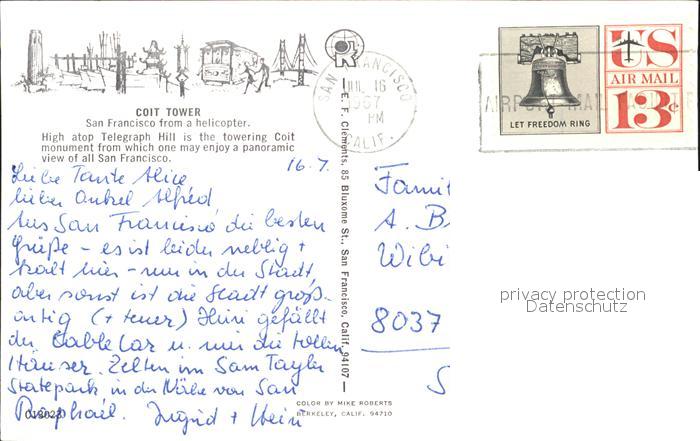 COIT TOWER
San Francisco from a helicopter.
High atop Telegraph Hill is the towering Coit
monument from which one may enjoy a panoramic
view of all San Francisco.
16.7.
Liebe Tante Alice
lieber Onkel Alfred
Aus San Francisco die besten
Grüße - es ist leider neblig +
kalt hier - nur in der Stadt,
aber sonst ist die Stadt groß-
artig (+ teuer) Heini gefällt
der Cable Car u. mir die tollen
Häuser. Zelten im Sam Taylor
Statepark in der Nähe von San
Raphael. Ingrid + Heini
E. F. Clements, 85 Bluxome St., San Francisco, Calif. 94107
COLOR BY MIKE ROBERTS
BERKELEY, CALIF. 94710
SAN FRANCISCO
JUL 16
1967
PM
CALIF.
LET FREEDOM RING
US
AIR MAIL
13c
Famil
A. B
Wibi
8037
S
privacy protection
Datenschutz